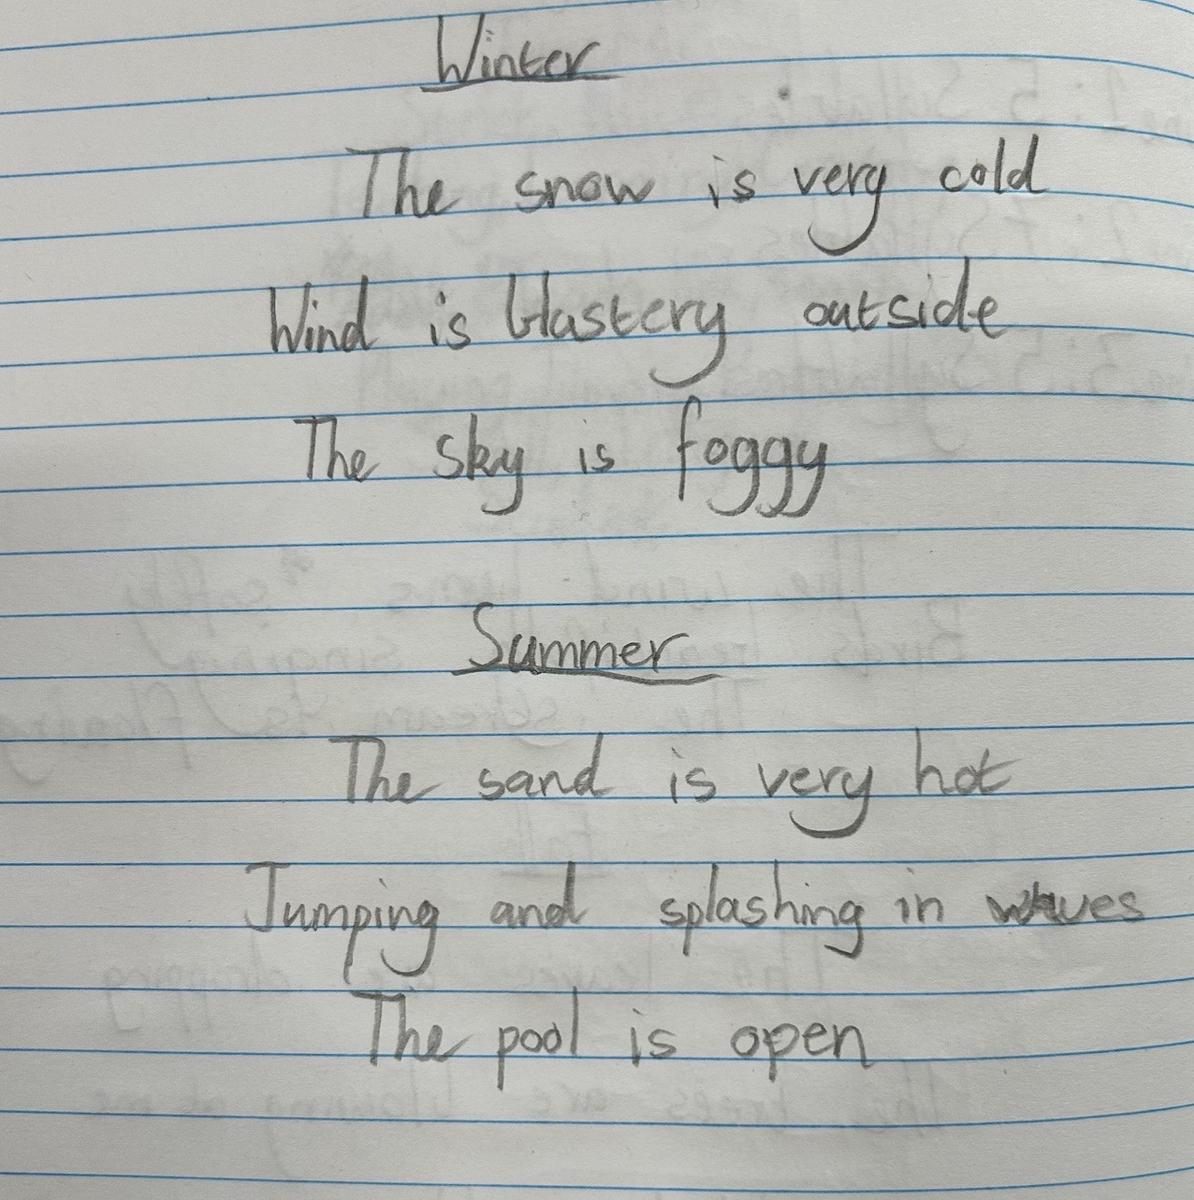 Winter
The snow is very cold
Wind is blastery outside
The sky is foggy
Summer
The sand is very hot
Jumping and splashing in waves
The pool is open